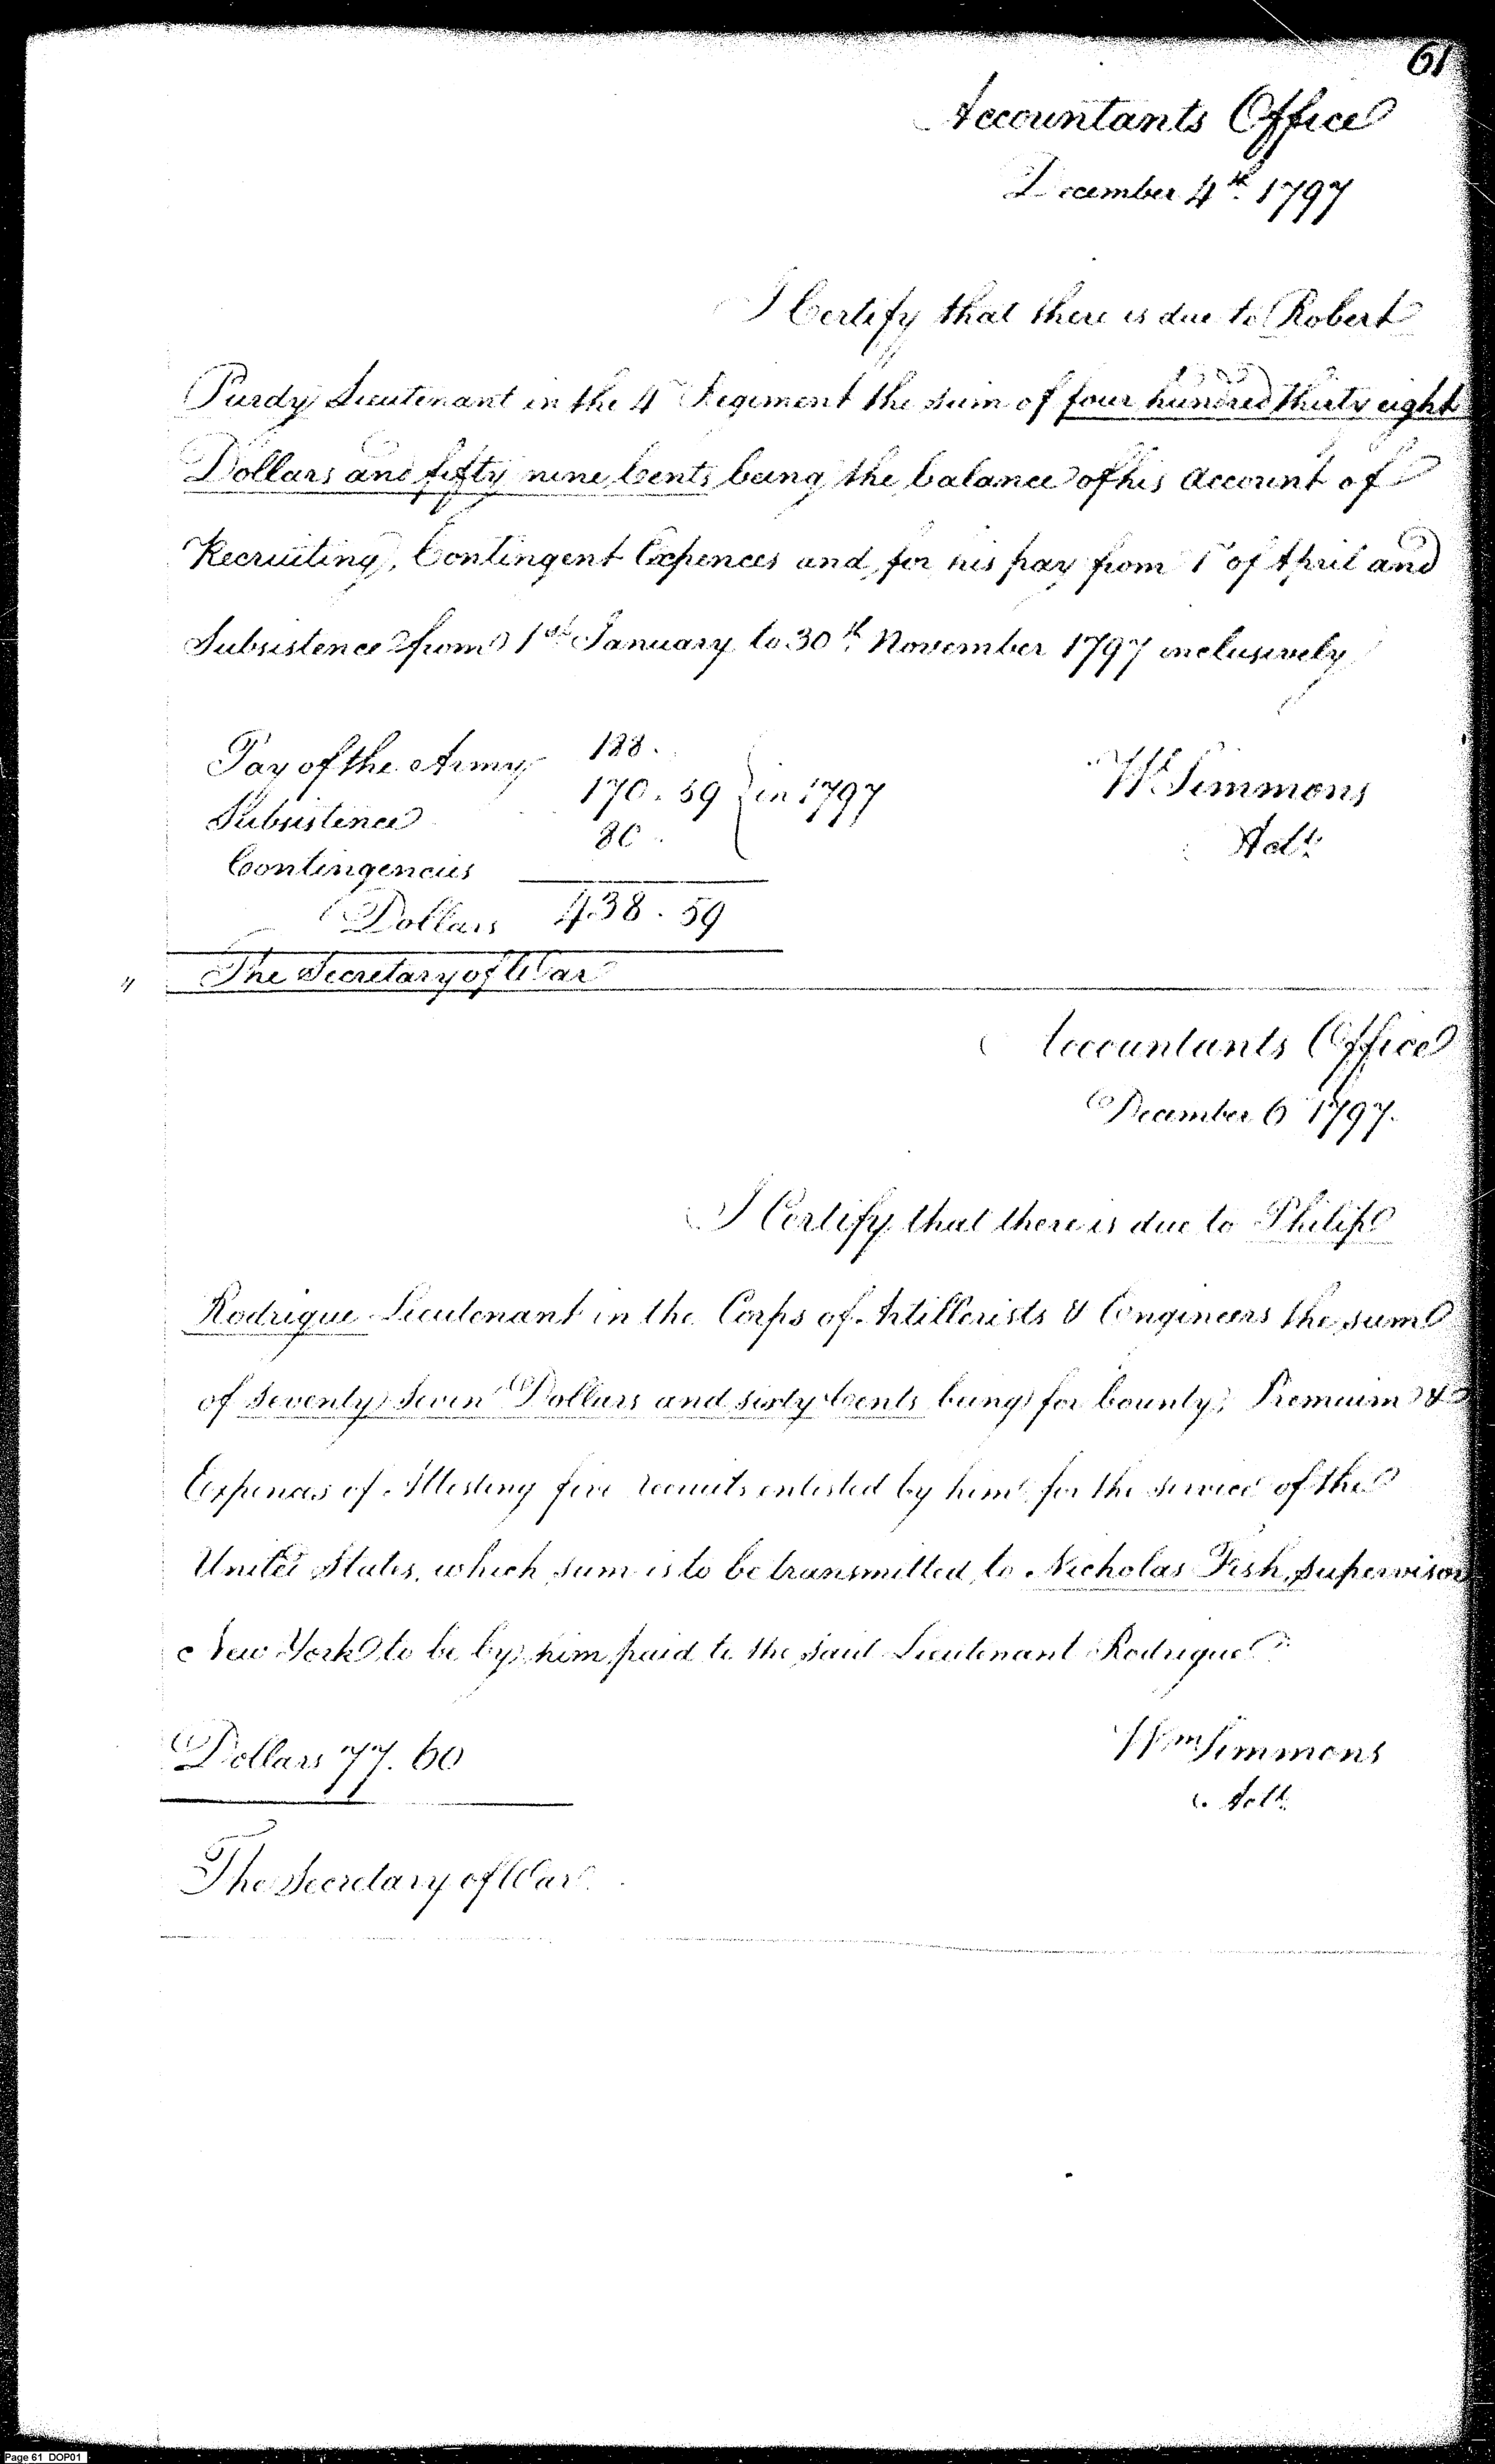 61
Accountants Office
December 4th 1797
I Certify that there is due to Robert
Purdy Lieutenant in the 4th Regiment the sum of four hundred thirty eight
Dollars and fifty nine Cents being the balance of his account of
Recruiting, Contingent Expences and for his pay from 1st of April and
Subsistence from 1st January to 30th November 1797 inclusively
Pay of the Army 188.
Subsistence 170.59 } in 1797
Contingencies 80.
Dollars 438.59
Wm Simmons
Actt
" The Secretary of War
Accountants Office
December 6 1797.
I Certify that there is due to Philip
Rodrigue Lieutenant in the Corps of Artillerists & Engineers the sum
of seventy seven Dollars and sixty Cents being for bounty, Premium &
Expences of Attesting five recruits enlisted by him for the service of the
United States, which sum is to be transmitted to Nicholas Fish, supervisor
New York to be by him paid to the said Lieutenant Rodrigue
Dollars 77.60
Wm Simmons
Actt
The Secretary of War
Page 61 DOP01